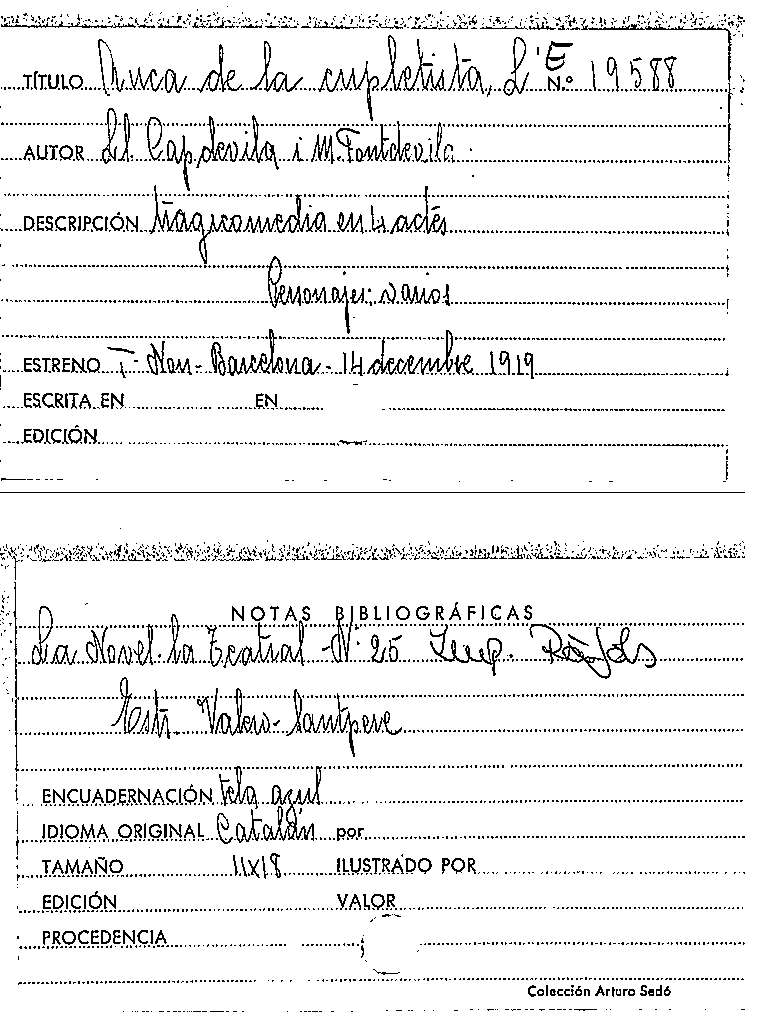 TÍTULO Auca de la cupletista, L' E N.º 19588
AUTOR Ll. Capdevila i M. Fontdevila
DESCRIPCIÓN tragicomedia en 4 actes
Personajes: varios
ESTRENO T- Nou- Barcelona - 14 decembre 1919
ESCRITA EN EN
EDICIÓN
NOTAS BIBLIOGRÁFICAS
La Novel·la Teatral - Nº 25 Imp. Ràfols
Estr. Valero-Santpere
ENCUADERNACIÓN tela azul
IDIOMA ORIGINAL Catalán por
TAMAÑO 11x18 ILUSTRADO POR
EDICIÓN VALOR
PROCEDENCIA
Colección Arturo Sedó